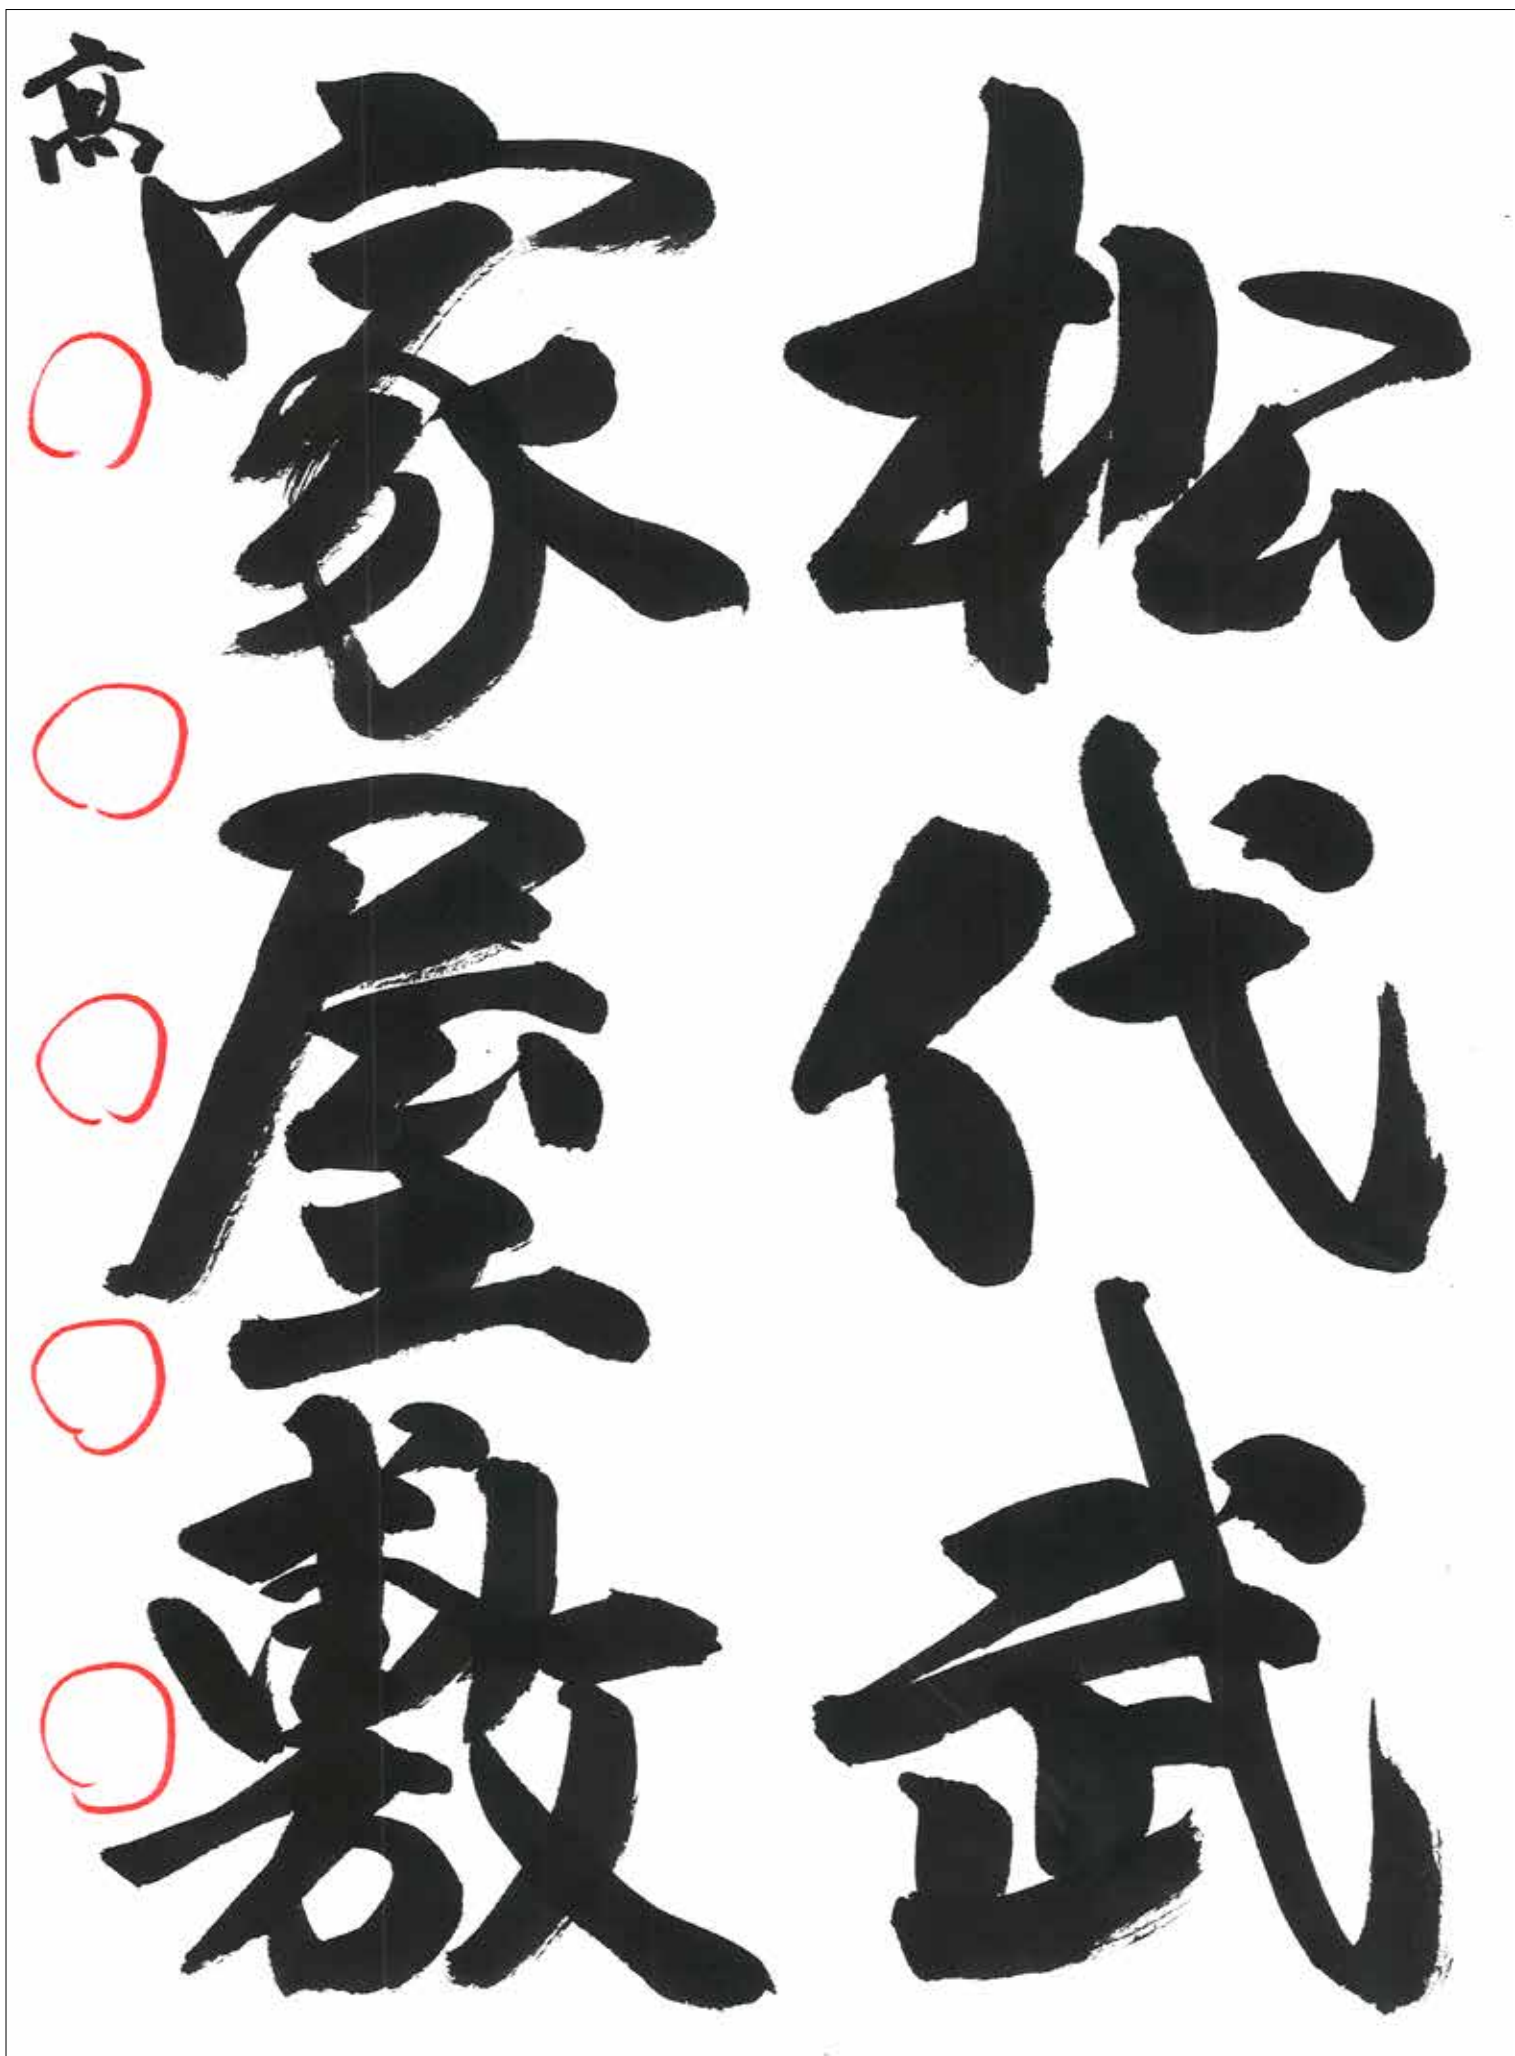 松代武
家屋敷
高